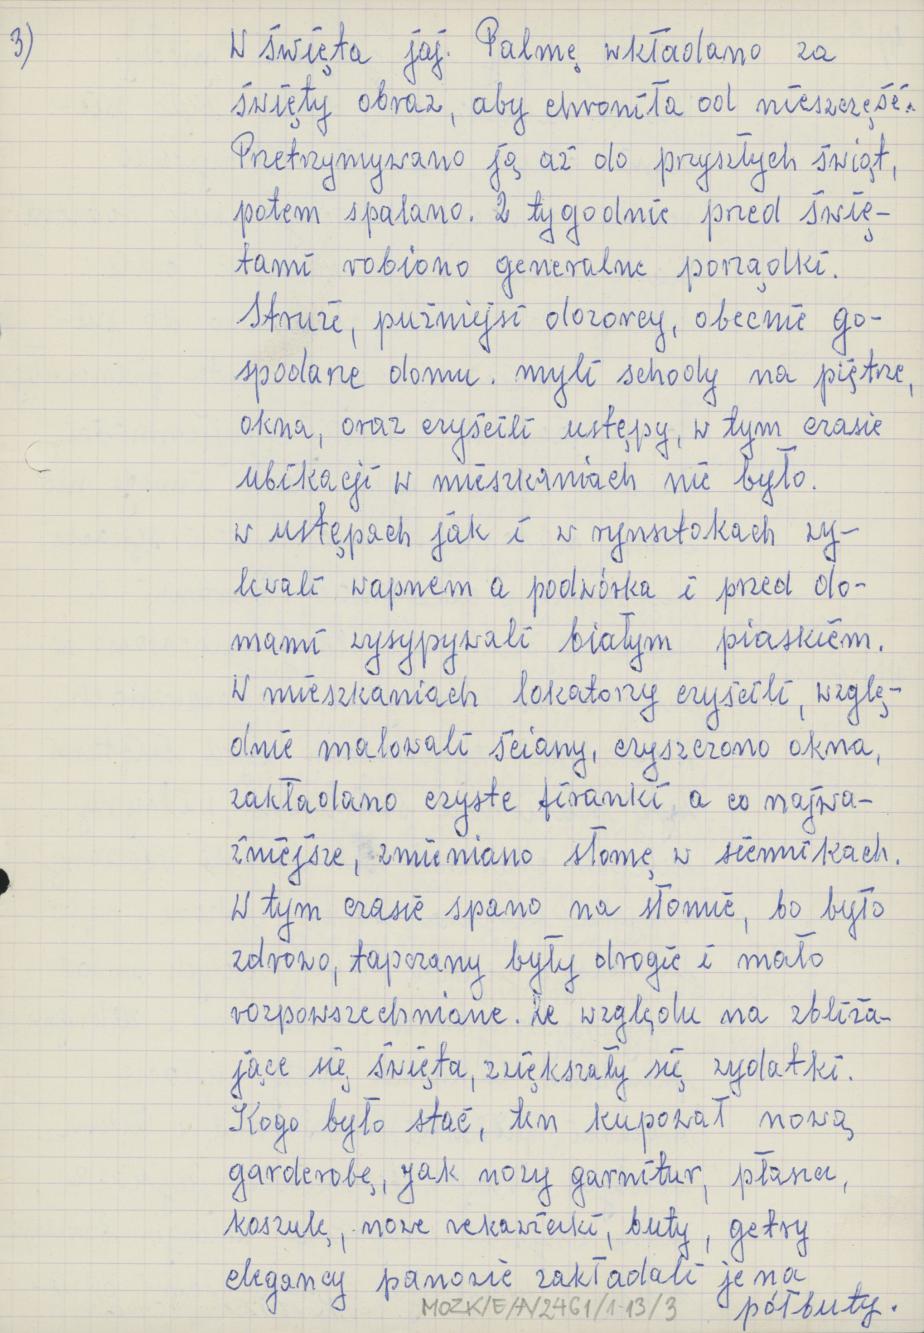 3)
W święta jaj. Palmę wkładano za
święty obraz, aby chroniła od nieszczęść.
Przetrzymywano ją aż do przyszłych świąt,
potem spalano. 2 tygodnie przed świę-
tami robiono generalne porządki.
Stróże, puźniejsi dozorcy, obecnie go-
spodarze domu. myli schody na piętrze,
okna, oraz czyścili ustępy, w tym czasie
ubikacji w mieszkaniach nie było.
w ustępach jak i w rynsztokach wy-
lewali wapnem a podwórka i przed do-
mami wysypywali białym piaskiem.
W mieszkaniach lokatorzy czyścili, wzglę-
dnie malowali ściany, czyszczono okna,
zakładano czyste firanki, a co najwa-
żniejsze, zmieniano słomę w siennikach.
W tym czasie spano na słomie, bo było
zdrowo, tapczany były drogie i mało
rozpowszechniane. Ze względu na zbliża-
jące się święta, zwiększały się wydatki.
Kogo było stać, ten kupował nową
garderobę, jak nowy garnitur, płaszcz,
koszulę, nowe rekawiczki, buty, getry
elegancy panowie zakładali je na
półbuty.
MOZK/E/A/2461/1-13/3